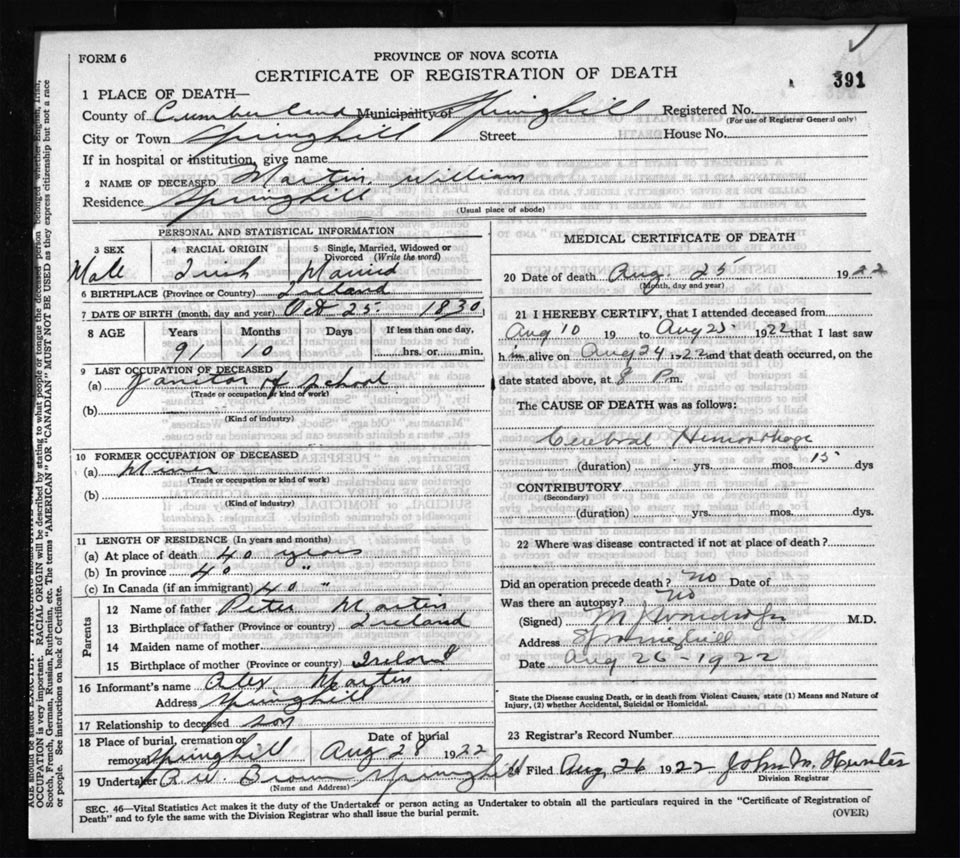 FORM 6
PROVINCE OF NOVA SCOTIA
CERTIFICATE OF REGISTRATION OF DEATH
391
1 PLACE OF DEATH—
County of Cumberland Municipality of Springhill Registered No.
(For use of Registrar General only)
City or Town Springhill Street House No.
If in hospital or institution, give name
2 NAME OF DECEASED Martin William
Residence Springhill
(Usual place of abode)
PERSONAL AND STATISTICAL INFORMATION
3 SEX 4 RACIAL ORIGIN 5 Single, Married, Widowed or Divorced (Write the word)
Male Irish Married
6 BIRTHPLACE (Province or Country) Ireland
7 DATE OF BIRTH (month, day and year) Oct 25 1830
8 AGE Years Months Days If less than one day,
91 10 hrs. or min.
9 LAST OCCUPATION OF DECEASED
(a) Janitor of School
(Trade or occupation or kind of work)
(b)
(Kind of industry)
10 FORMER OCCUPATION OF DECEASED
(a) Miner
(Trade or occupation or kind of work)
(b)
(Kind of industry)
11 LENGTH OF RESIDENCE (In years and months)
(a) At place of death 40 years
(b) In province 40 "
(c) In Canada (if an immigrant) 40 "
Parents
12 Name of father Peter Martin
13 Birthplace of father (Province or country) Ireland
14 Maiden name of mother
15 Birthplace of mother (Province or country) Ireland
16 Informant's name Alex Martin
Address Springhill
17 Relationship to deceased son
18 Place of burial, cremation or removal Springhill Date of burial Aug 28 1922
19 Undertaker Brown Springhill
(Name and Address)
MEDICAL CERTIFICATE OF DEATH
20 Date of death Aug 25 1922
(Month, day and year)
21 I HEREBY CERTIFY, that I attended deceased from
Aug 10 19 to Aug 25 1922 that I last saw
him alive on Aug 24 1922 and that death occurred, on the
date stated above, at 8 P.m.
The CAUSE OF DEATH was as follows:
Cerebral Hemorrhage
(duration) yrs. mos. 15 dys
CONTRIBUTORY
(Secondary)
(duration) yrs. mos. dys.
22 Where was disease contracted if not at place of death?
Did an operation precede death? no Date of
Was there an autopsy? no
(Signed) M.D.
Address Springhill
Date Aug 26-1922
State the Disease causing Death, or in death from Violent Causes, state (1) Means and Nature of
Injury, (2) whether Accidental, Suicidal or Homicidal.
23 Registrar's Record Number
24 Filed Aug 26 1922 John M. Hunter
Division Registrar
SEC. 46—Vital Statistics Act makes it the duty of the Undertaker or person acting as Undertaker to obtain all the particulars required in the "Certificate of Registration of
Death" and to fyle the same with the Division Registrar who shall issue the burial permit.
(OVER)
OCCUPATION is very important. RACIAL ORIGIN will be described by stating to what people or tongue the deceased person belonged whether English, Irish,
Scotch, French, German, Russian, Ruthenian, etc. The terms "AMERICAN" OR "CANADIAN" MUST NOT BE USED as they express citizenship but not a race
or people. See instructions on back of Certificate.